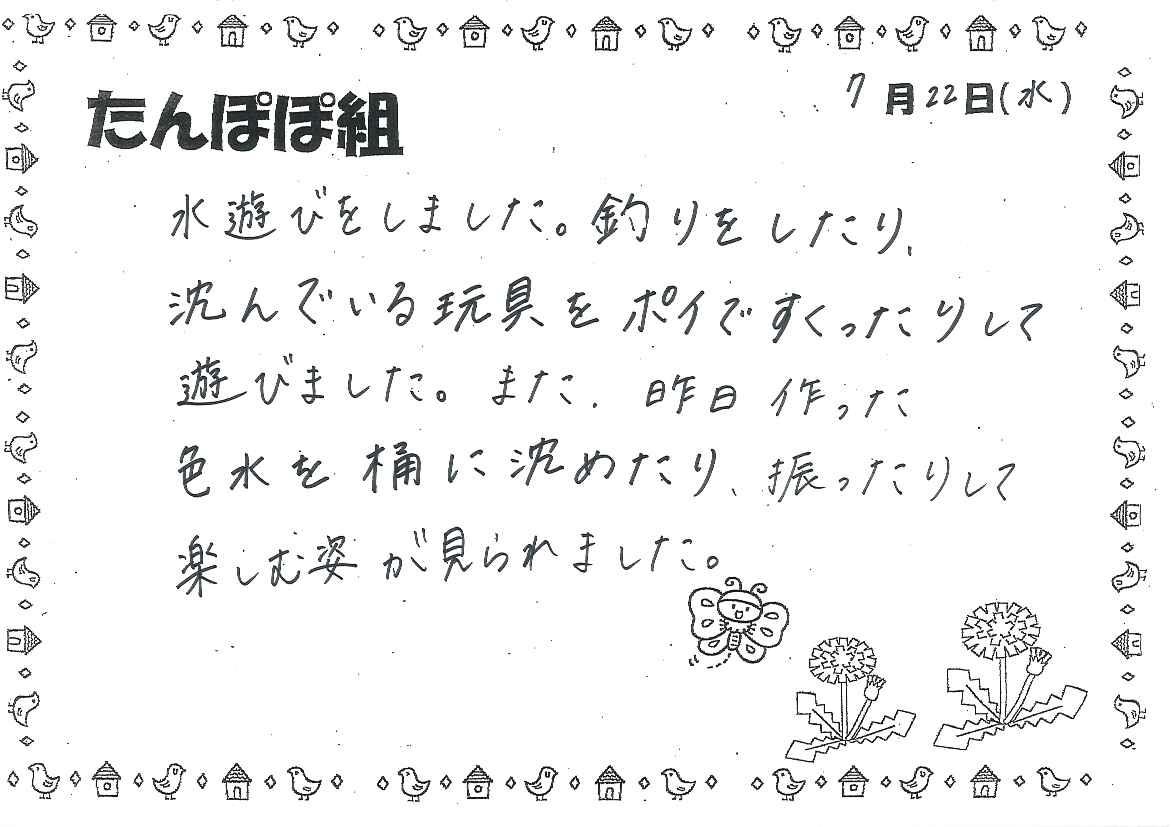 たんぽぽ組
7月22日(水)
水遊びをしました。釣りをしたり、
沈んでいる玩具をポイですくったりして
遊びました。また、昨日作った
色水を桶に沈めたり、振ったりして
楽しむ姿が見られました。